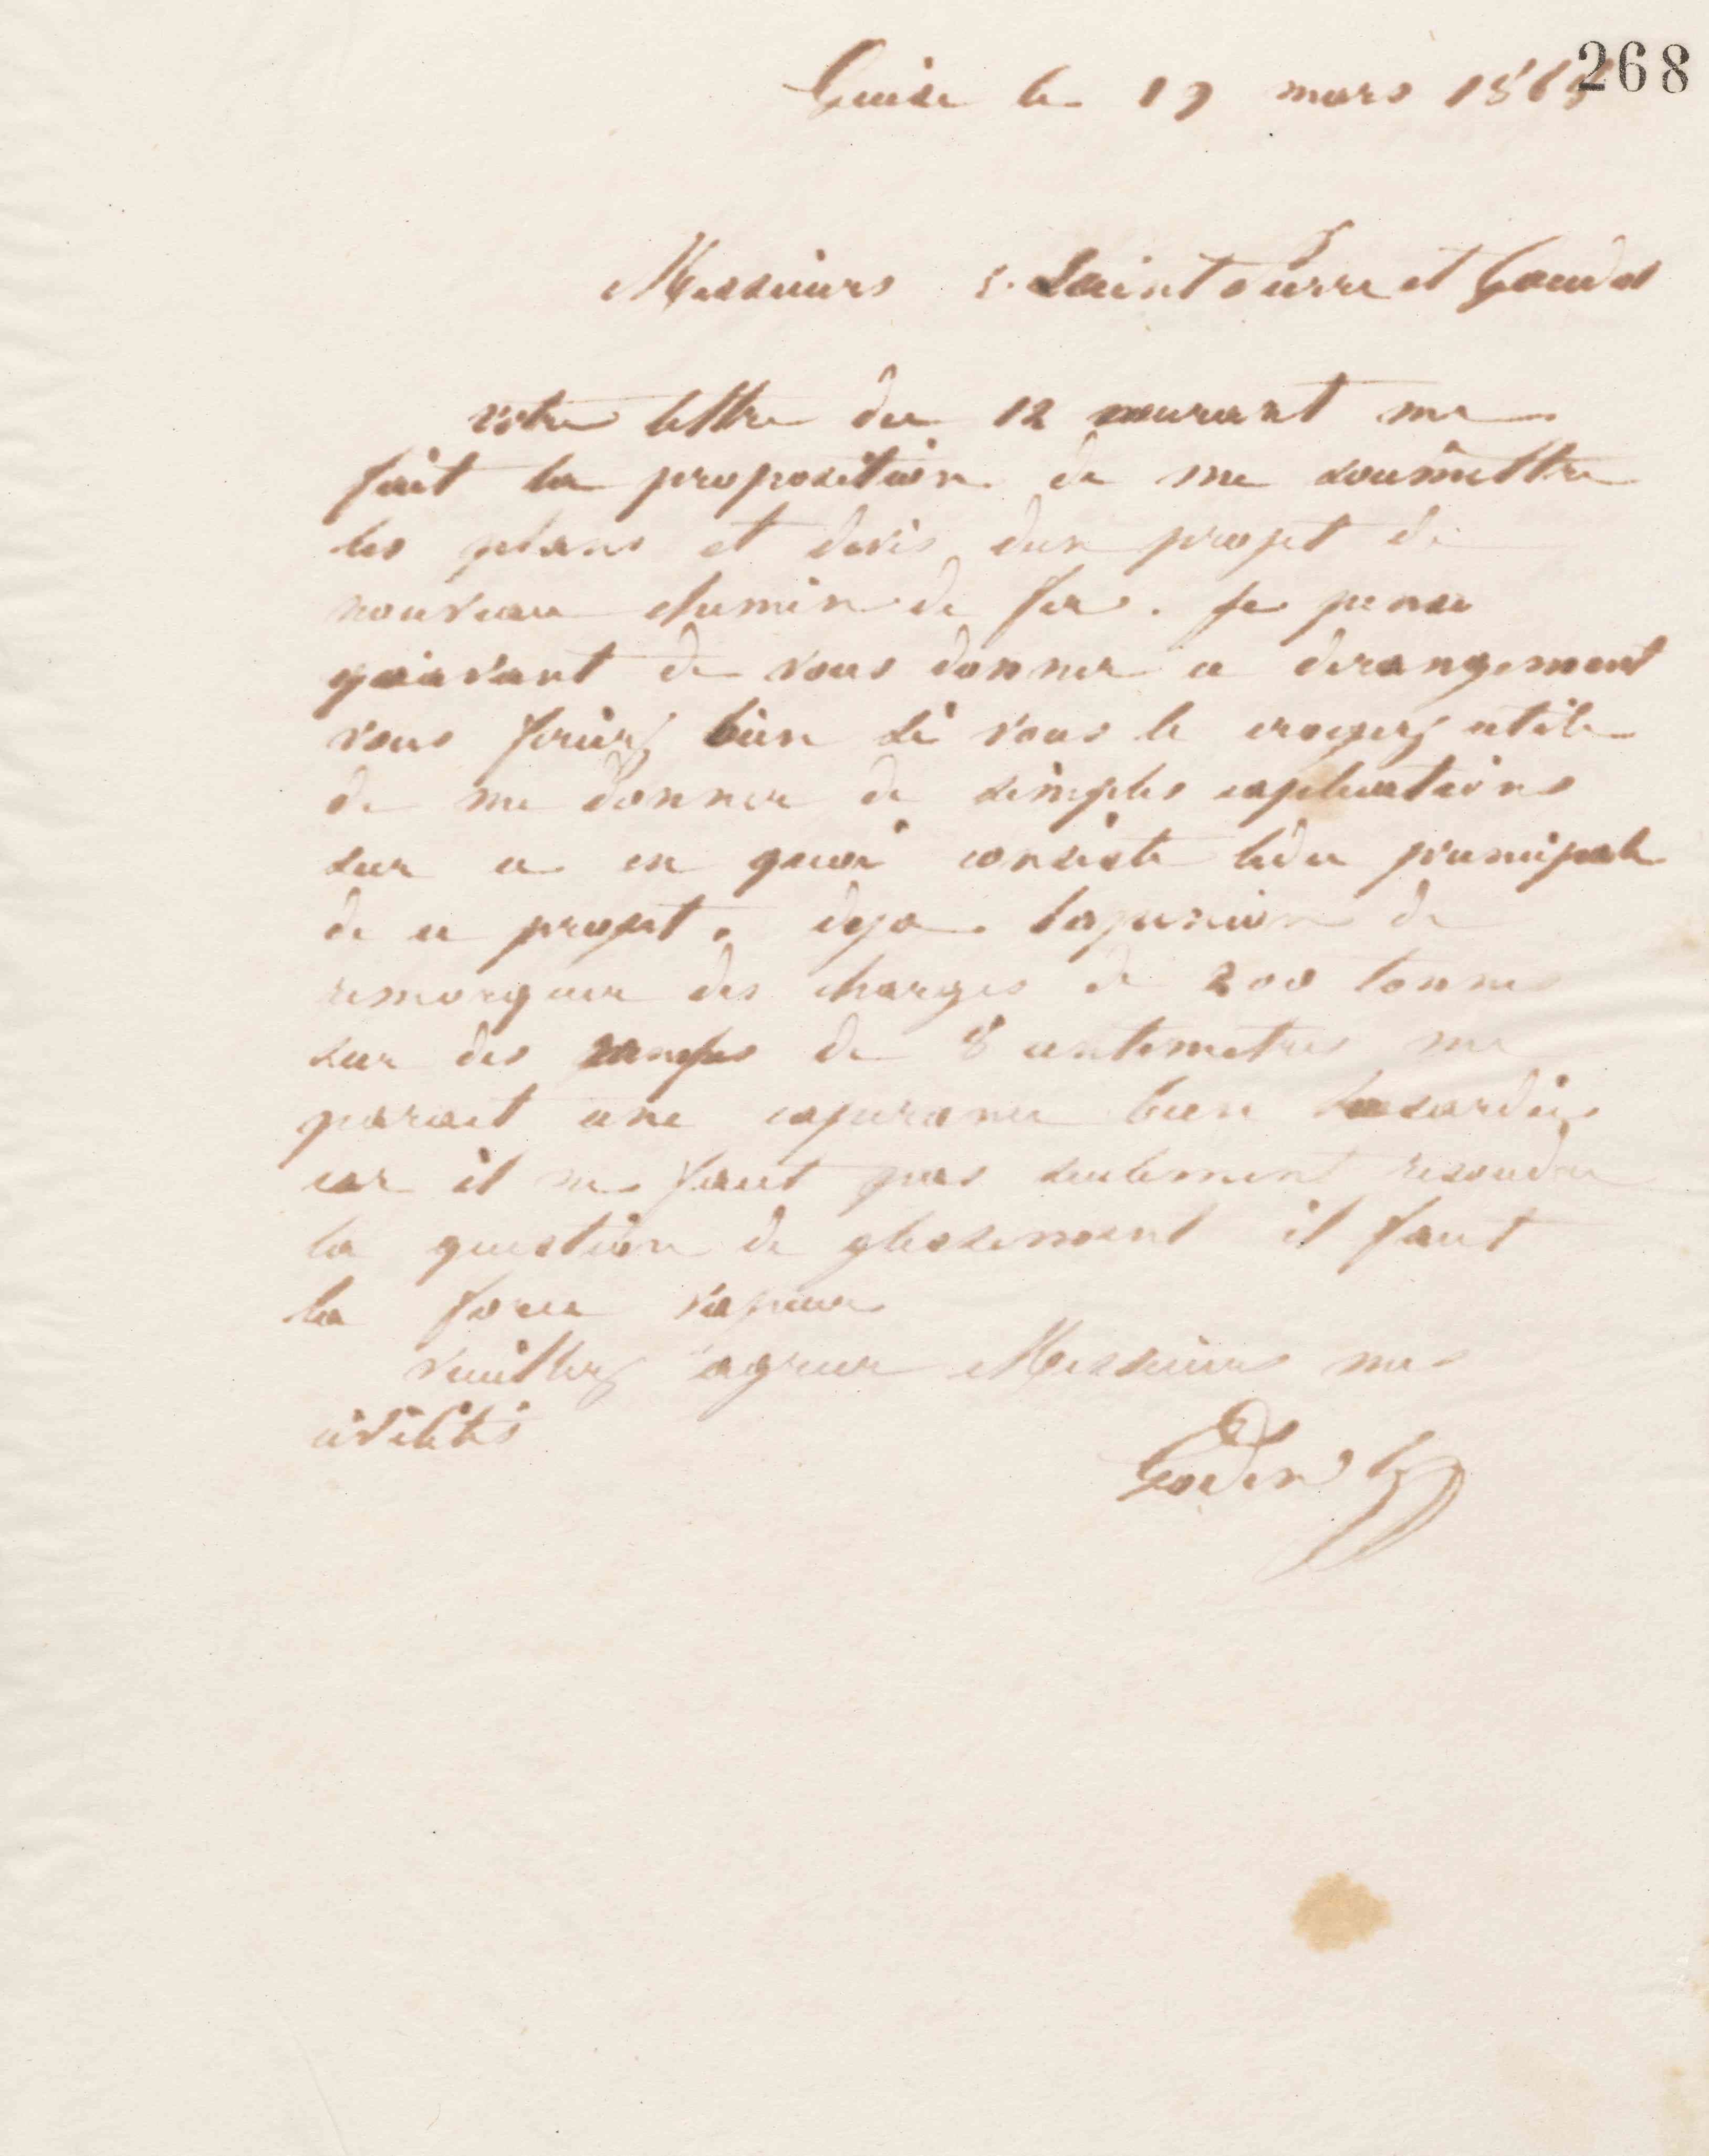 268
Guise le 19 mars 186
Messieurs Saint Pierre et Goudet
votre lettre du 12 courant me
fait la proposition de me soumettre
les plans et devis dun projet de
nouveau chemin de fer. Je pense
quavant de vous donner ce derangement
vous feriez bien si vous le croyez utile
de me donner de simples explications
sur ce en quoi consiste lidee principale
de ce projet. deja lopinion de
remorquer des charges de 200 tonnes
sur des rampes de 8 centimetres me
parait une esperance bien hasardée
car il ne faut pas seulement resoudre
la question de glissement il faut
la force vapeur
veuillez agreer Messieurs mes
civilités
Godin